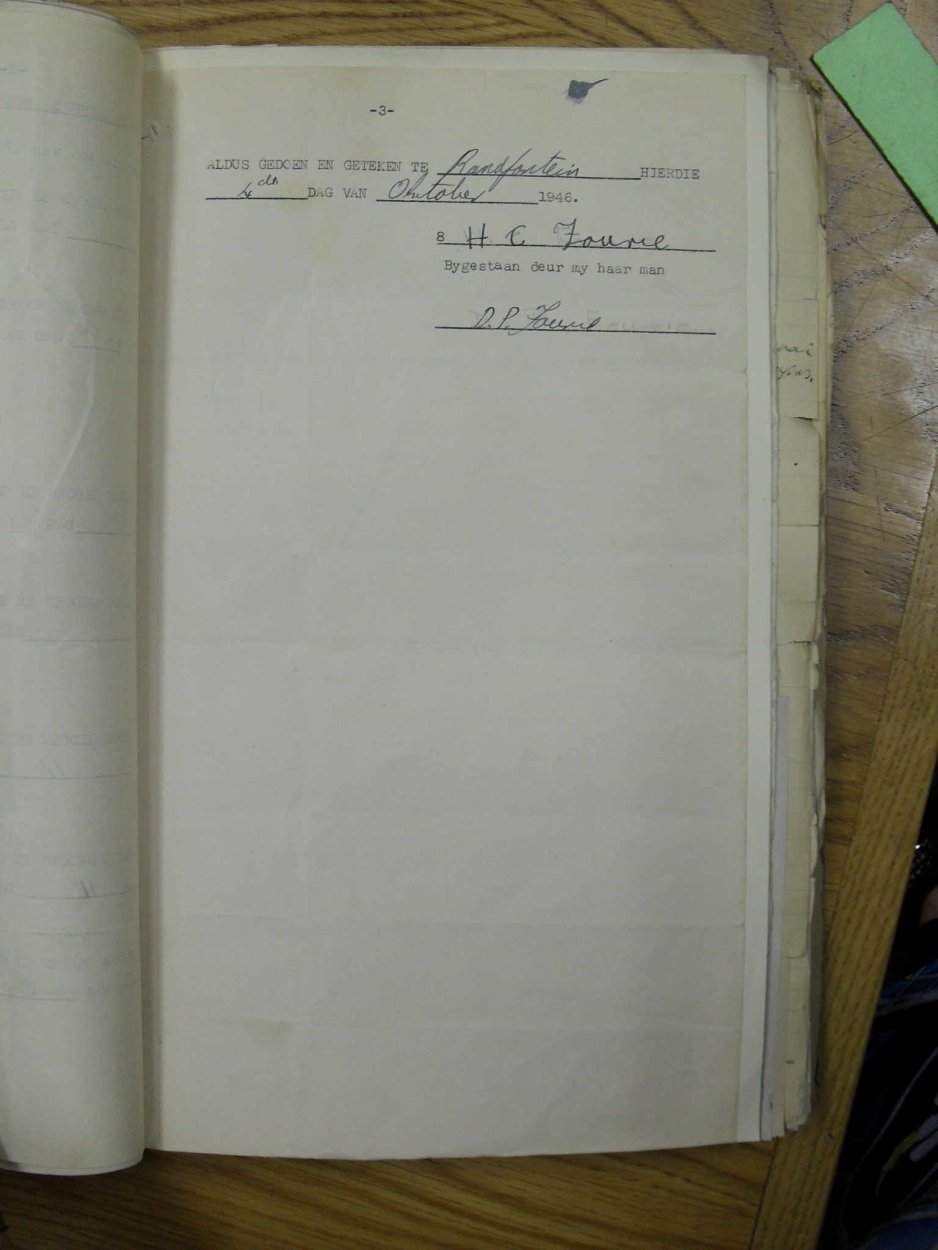 -3-
ALDUS GEDOEN EN GETEKEN TE Randfontein HIERDIE
4de DAG VAN Oktober 1946.
8 H C Fourie
Bygestaan deur my haar man
D. P. Fourie